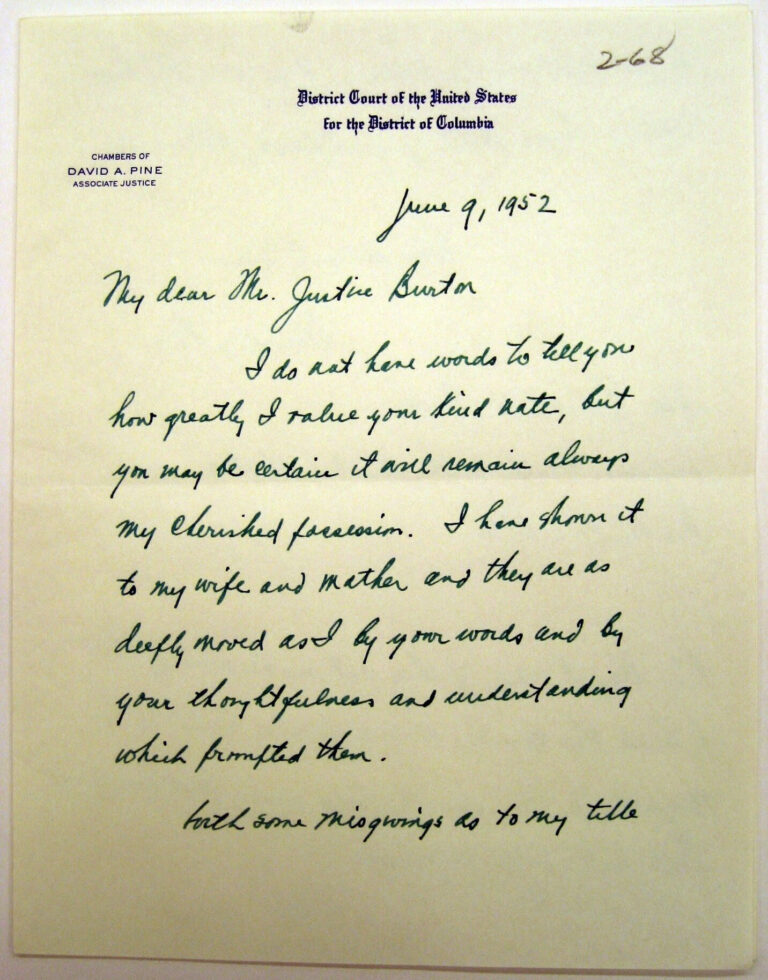 2-68
District Court of the United States
for the District of Columbia
CHAMBERS OF
DAVID A. PINE
ASSOCIATE JUSTICE
June 9, 1952
My dear Mr. Justice Burton
I do not have words to tell you
how greatly I value your kind note, but
you may be certain it will remain always
my cherished possession. I have shown it
to my wife and mother and they are as
deeply moved as I by your words and by
your thoughtfulness and understanding
which prompted them.
With some misgivings as to my title